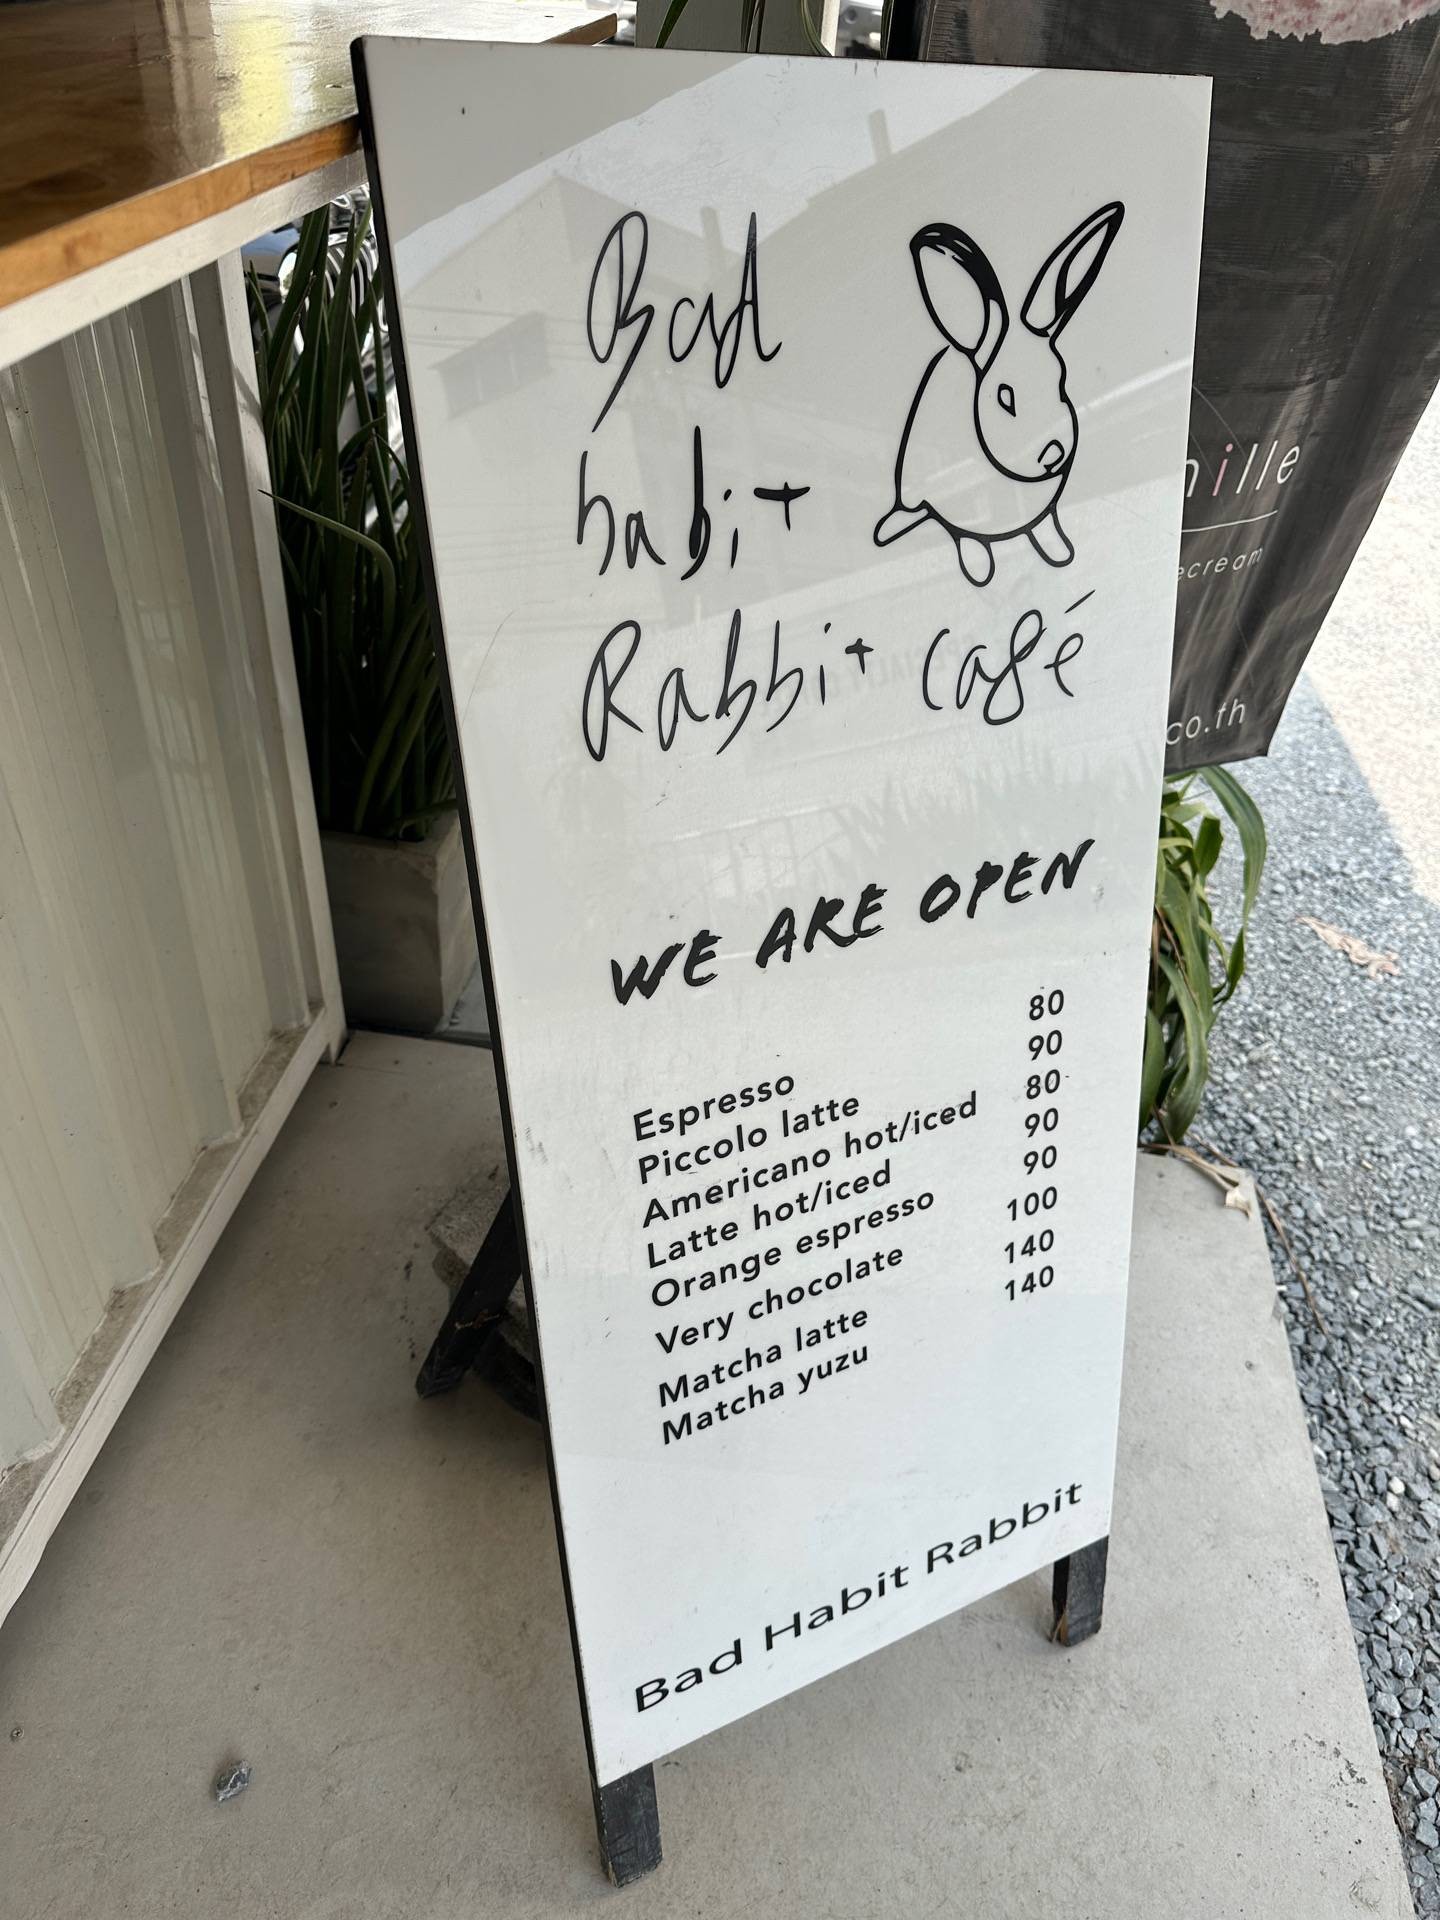 Bad
habit
Rabbit café
WE ARE OPEN
Espresso 80
Piccolo latte 90
Americano hot/iced 80
Latte hot/iced 90
Orange espresso 90
Very chocolate 100
Matcha latte 140
Matcha yuzu 140
Bad Habit Rabbit
ille
co.th